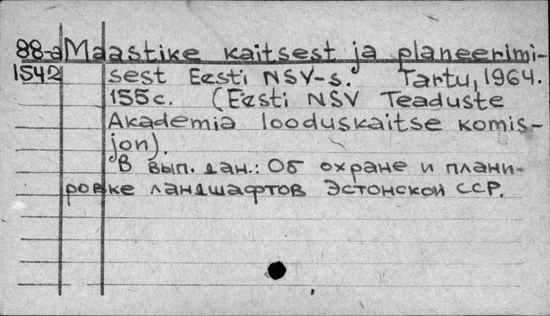 88-а Maastike kaitsest ja planeerimi-
1542 sest Eesti NSV-s. Tartu, 1964.
155с. (Eesti NSV Teaduste
Akadeemia looduskaitse komis-
jon).
В вып. дан.: Об охране и плани-
ровке ландшафтов Эстонской ССР.